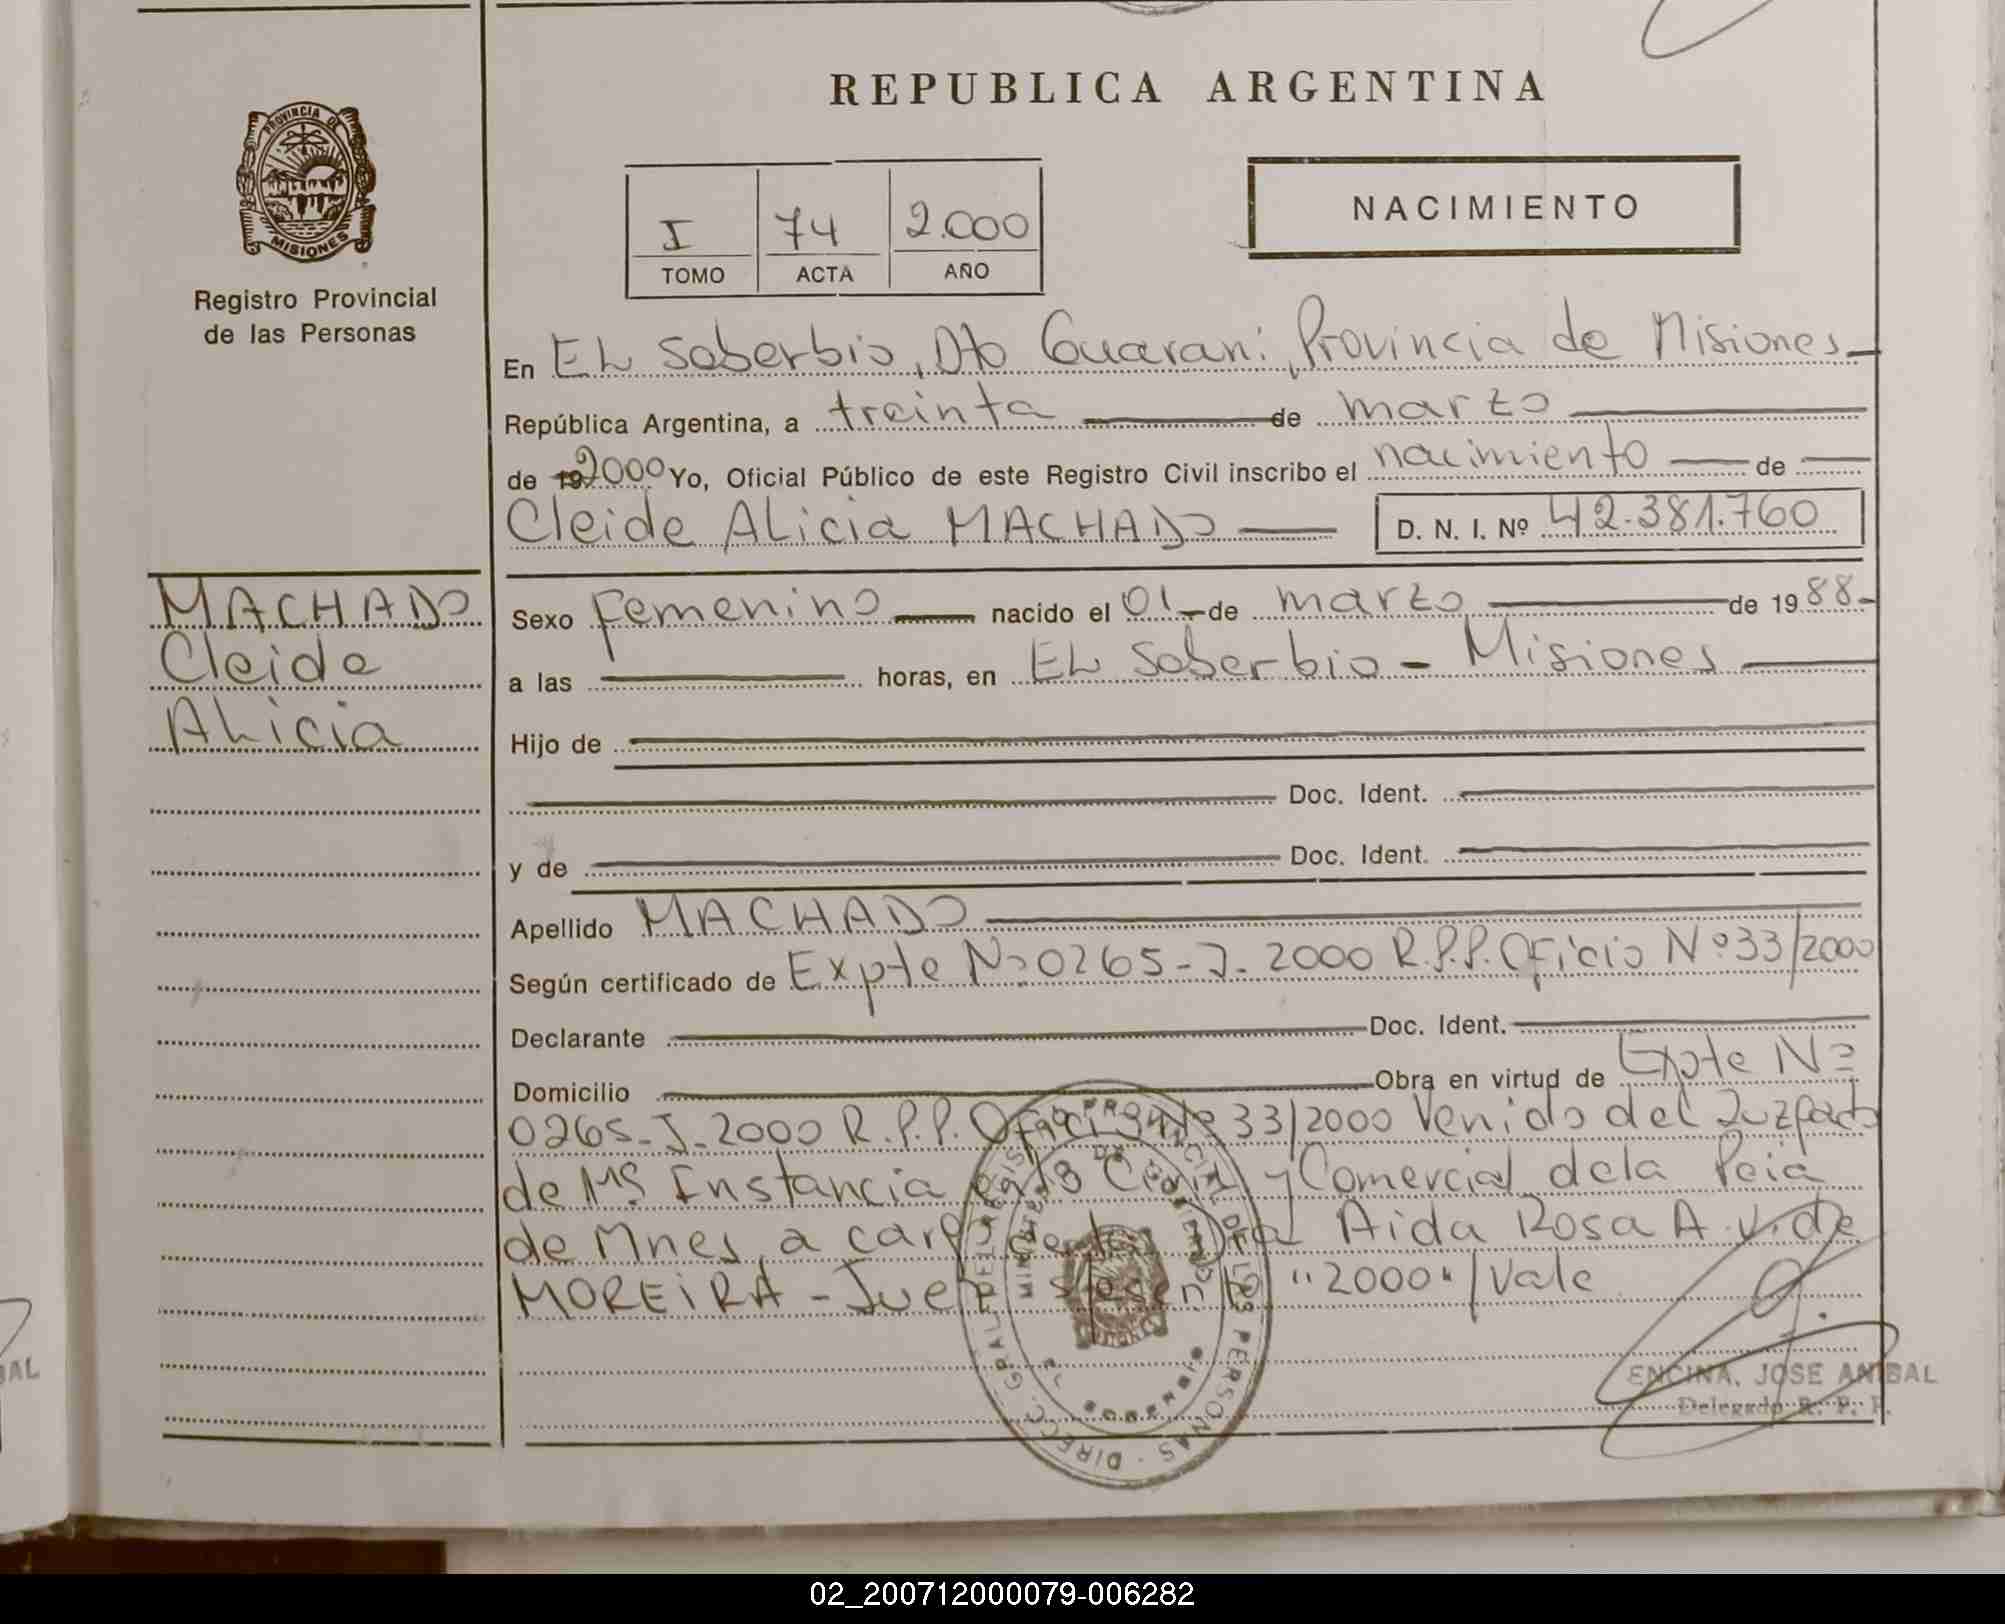 REPUBLICA ARGENTINA
PROVINCIA DE MISIONES
Registro Provincial
de las Personas
I 74 2.000
TOMO ACTA AÑO
NACIMIENTO
En EL Soberbio, Dto Guarani, Provincia de Misiones
República Argentina, a treinta de marzo
de 19 2000 Yo, Oficial Público de este Registro Civil inscribo el nacimiento de
Cleide ALicia MACHADO D. N. I. Nº 42.381.760
MACHADO
Cleide
ALicia
Sexo Femenino nacido el 01 de marzo de 1988
a las horas, en EL Soberbio - Misiones
Hijo de
Doc. Ident.
y de Doc. Ident.
Apellido MACHADO
Según certificado de Expte Nº 0265-J-2000 R.P.P. Oficio Nº 33/2000
Declarante Doc. Ident.
Domicilio Obra en virtud de Expte Nº
0265-J-2000 R.P.P. Oficio 33/2000 Venido del Juzgado
de Instancia Civil y Comercial de la Pcia
de Mnes, a cargo de la Dra Aida Rosa A. V. de
MOREIRA - Juez "2000"/Vale
DIREC. GRAL. DEL REGISTRO PROVINCIAL DE LAS PERSONAS
MINISTERIO DE GOBIERNO
MISIONES
ENCINA, JOSE ANIBAL
Delegado R. P. P.
BAL
02_200712000079-006282